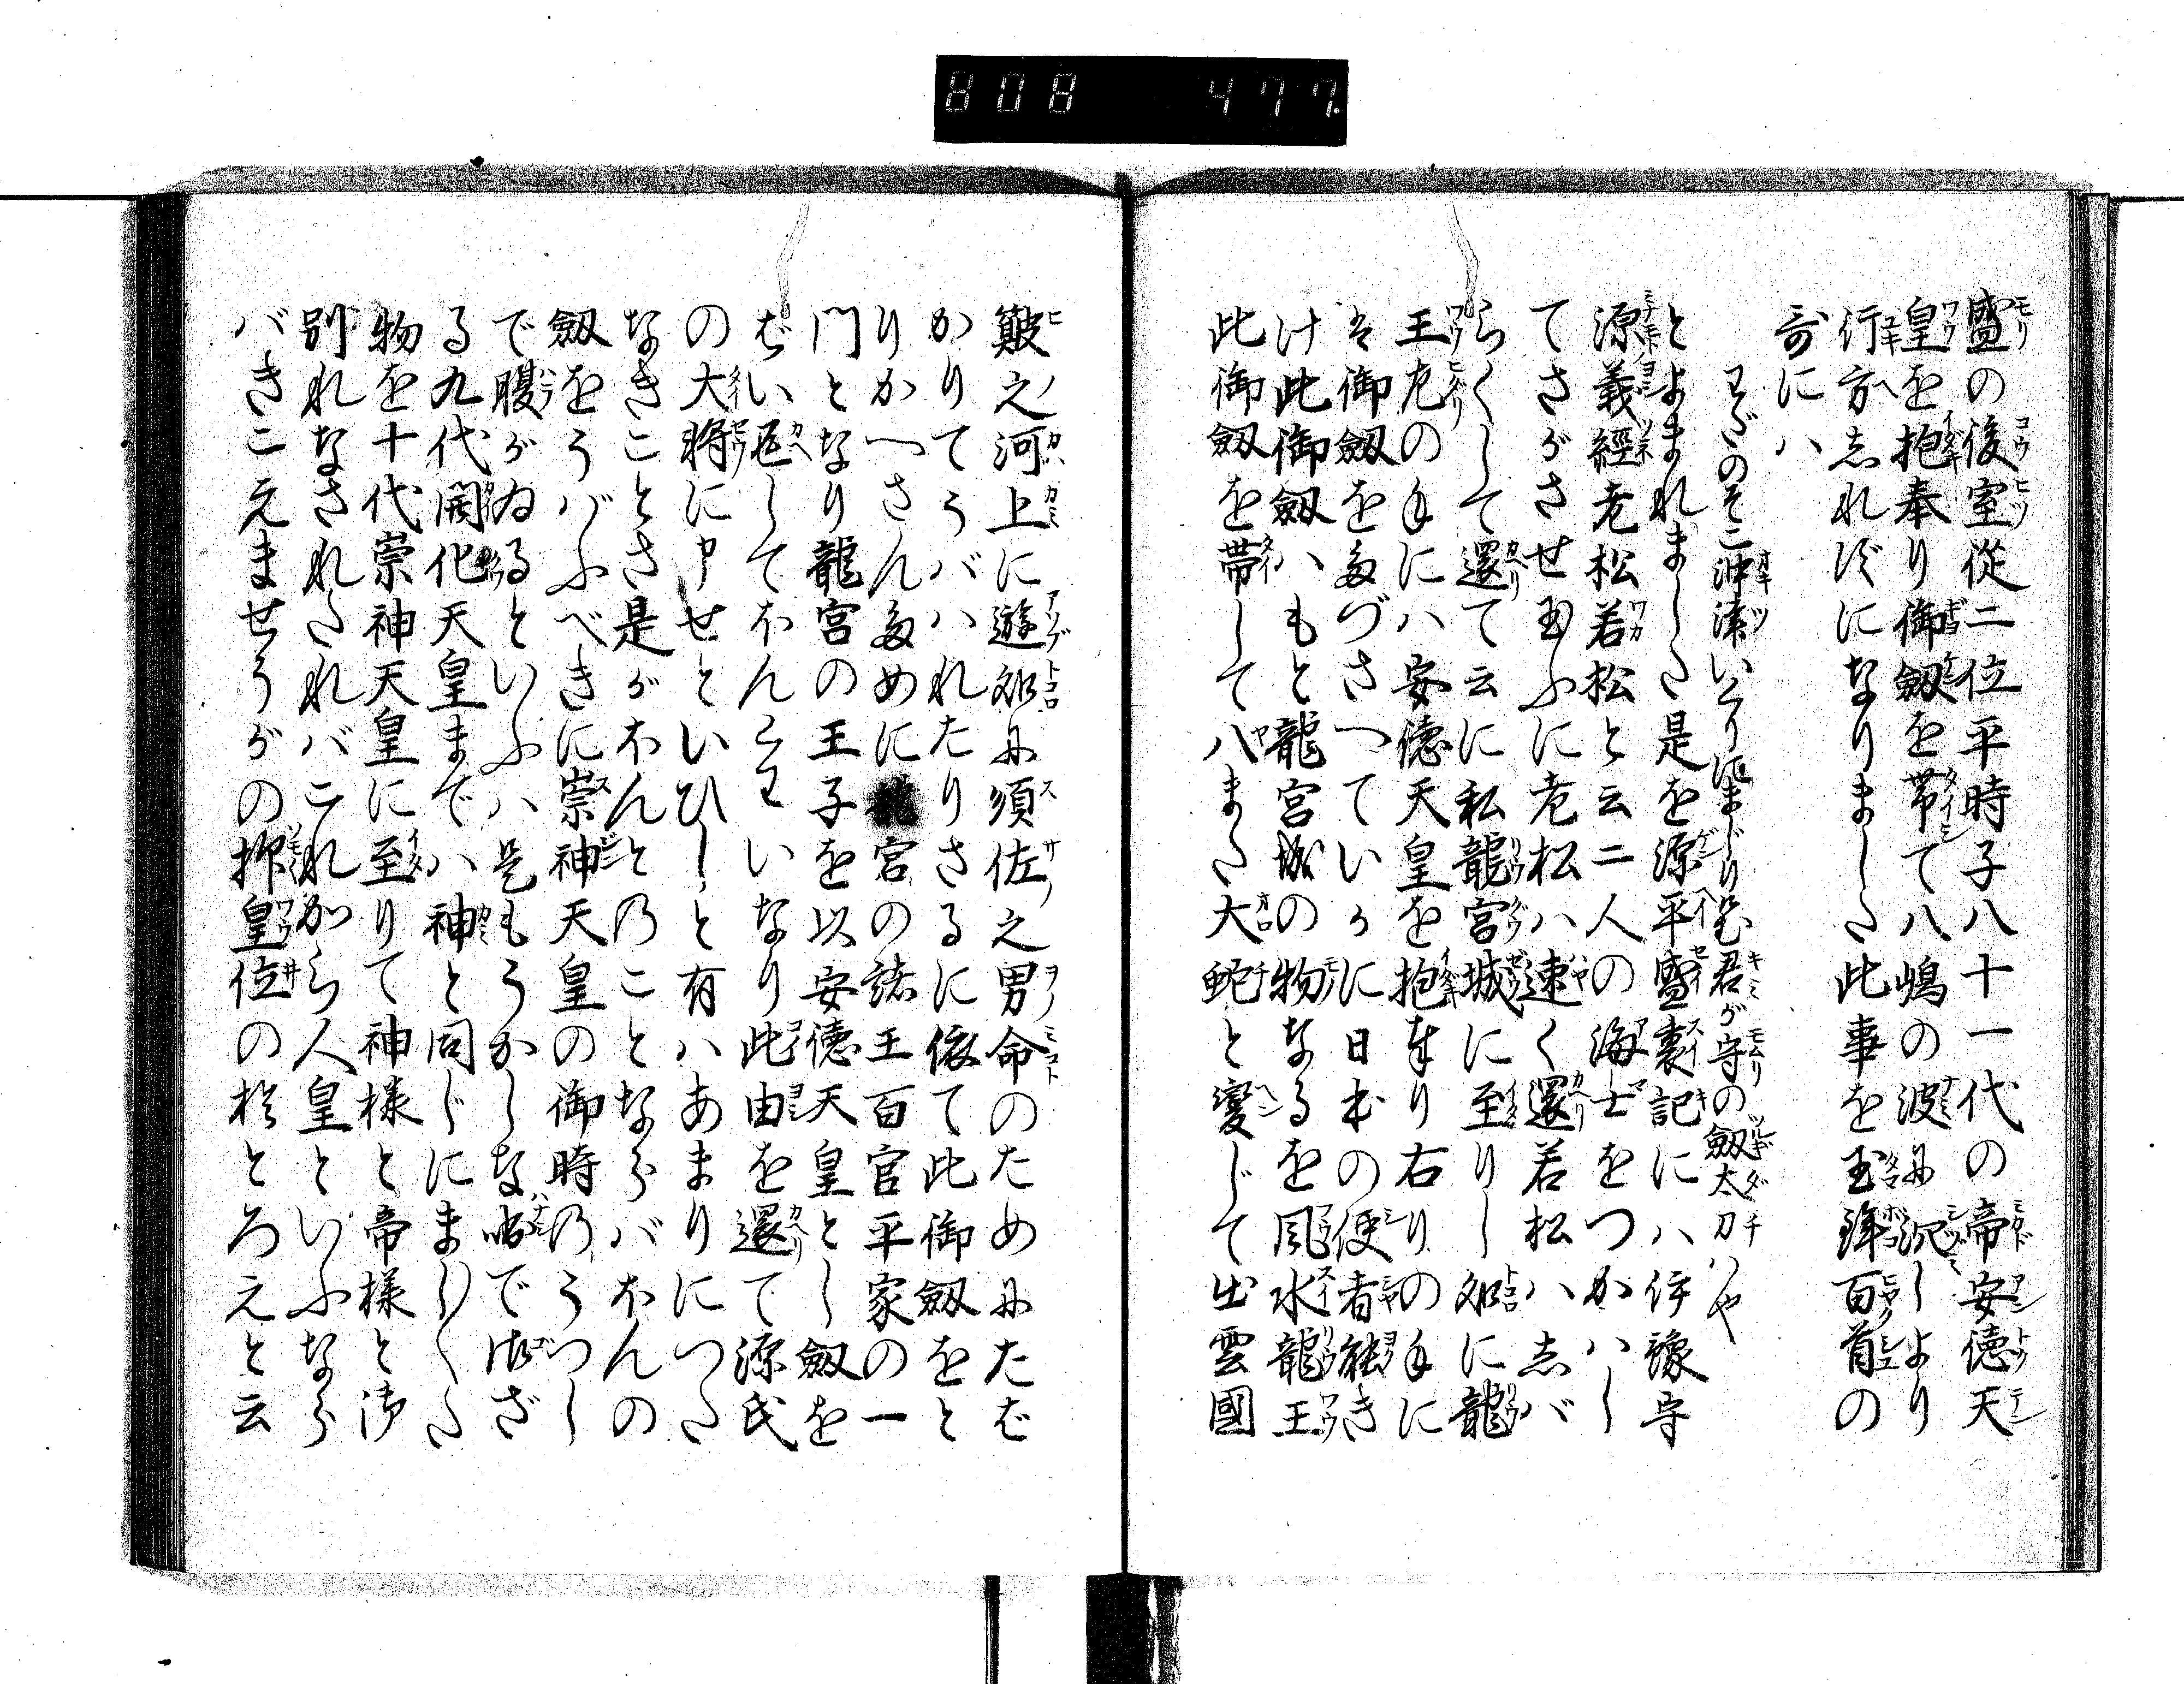 808 477.
盛の後室從二位平時子八十一代の帝安徳天
皇を抱奉り御劔を帯て八嶋の波に沉しより
行方志れずになりました此事を玉鉾百首の
哥にハ
わざのそこ沖津いくりにまじりにし君が守の劔太刀ハや
とよまれました是を源平盛衰記にハ伊豫守
源義經老松若松と云二人の海士をつかハし
てさがさせ玉ふに老松ハ速く還若松ハ志バ
らくして還て云に私龍宮城に至りし處に龍
王左の手にハ安徳天皇を抱奉り右りの手に
ハ御劔をたづさつていふに日本の使者能き
け此御劔ハもと龍宮城の物なるを風水龍王
此御劔を帯して八また大蛇と變じて出雲國
簸之河上に遊処に須佐之男命のためにたば
かりてうバハれたりさるに依て此御劔をと
りかへさんために龍宮の諸王百官平家の一
門となり龍宮の王子を以安徳天皇とし劔を
ばい返してほんまいなり此由を還て源氏
の大将に申せといひしと有ハあまりにつた
なきことさ是がほんとのことならバほんの
劔をうバふべきに崇神天皇の御時のうつし
で腹がゐるといふハ是もうかしな咄で御ざ
る九代開化天皇までハ神と同じにましました
物を十代崇神天皇に至りて神様と帝様と御
別れなされたれバこれから人皇といふなら
バきこえませうがの抑皇位の於とろえと云